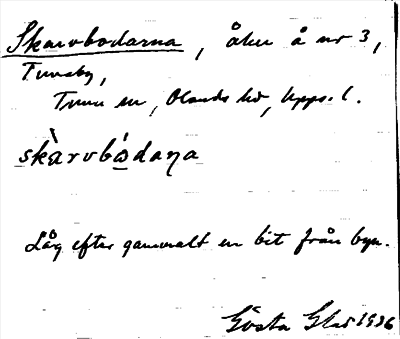 Skarvbodarna, åker å nr 3,
Tuna sn, Olands hd, Upps. l.
skàrvbo᷄daṇa
Låg efter gammalt en bit från byn.
Gösta 1936